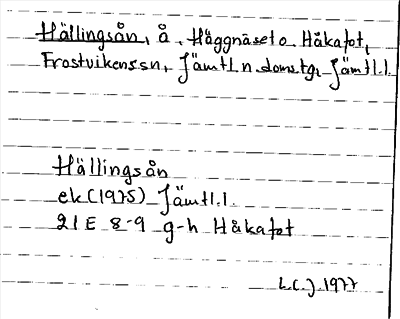 Hällingsån, å, Häggnäset o. Håkafot,
Frostvikens sn, Jämtl. n. doms tg, Jämtl. l.
Hällingsån
ek (1975) Jämtl. l.
21E 8-9 g-h Håkafot
L.C.J. 1977